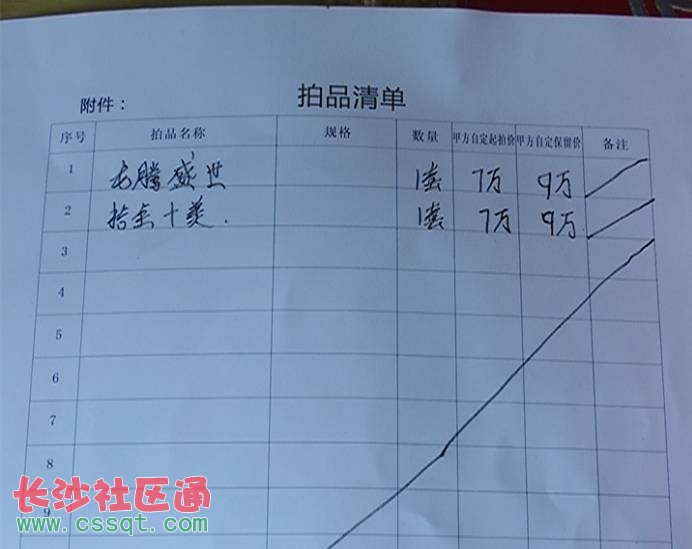 附件：
拍品清单
序号 拍品名称 规格 数量 甲方自定起拍价 甲方自定保留价 备注
1 龙腾盛世 1套 7万 9万
2 拾全十美. 1套 7万 9万
3
4
5
6
7
8
9
长沙社区通
www.cssqt.com